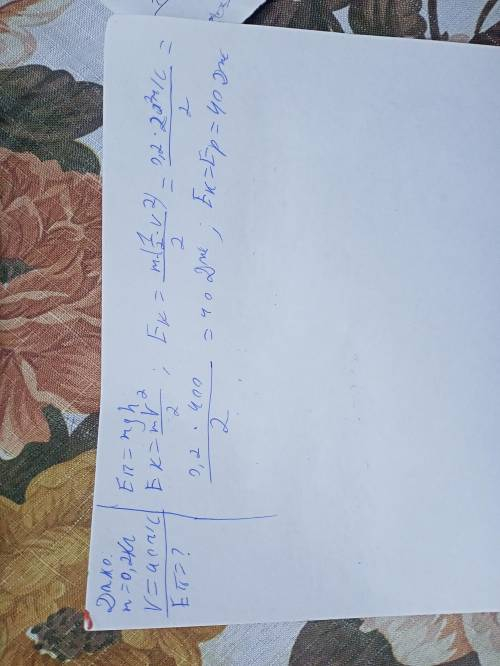 Дано:
m=0,2кг
V=40м/с
Eп=?
Eп=mgh
Eк=mV²/2; Eк=m(1/2·V²)/2=0,2·20²м/с/2=
0,2·400/2=40Дж; Eк=Ep=40Дж